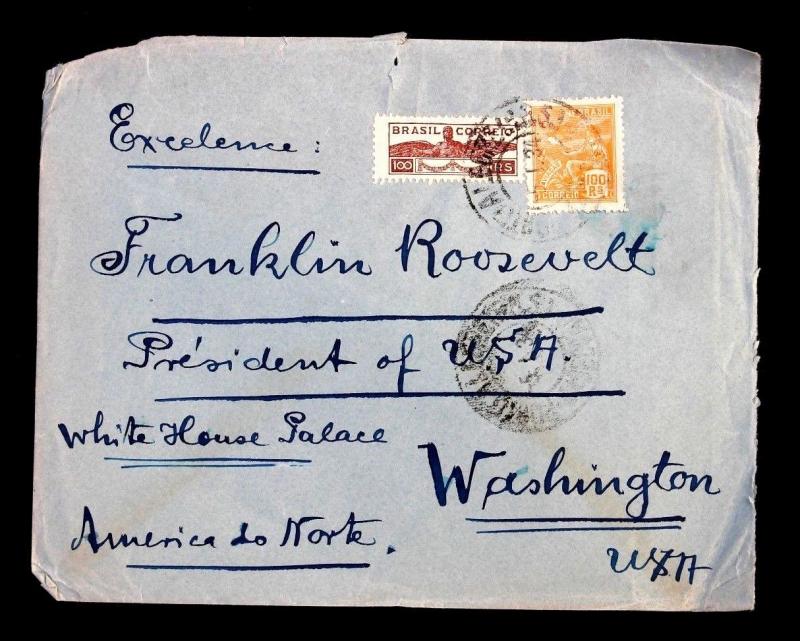 Excelence:
BRASIL CORREIO
100 RS
BRASIL
100
Rs
CORREIO
Franklin Roosevelt
Président of USA.
White House Palace
Washington
America do Norte.
USA